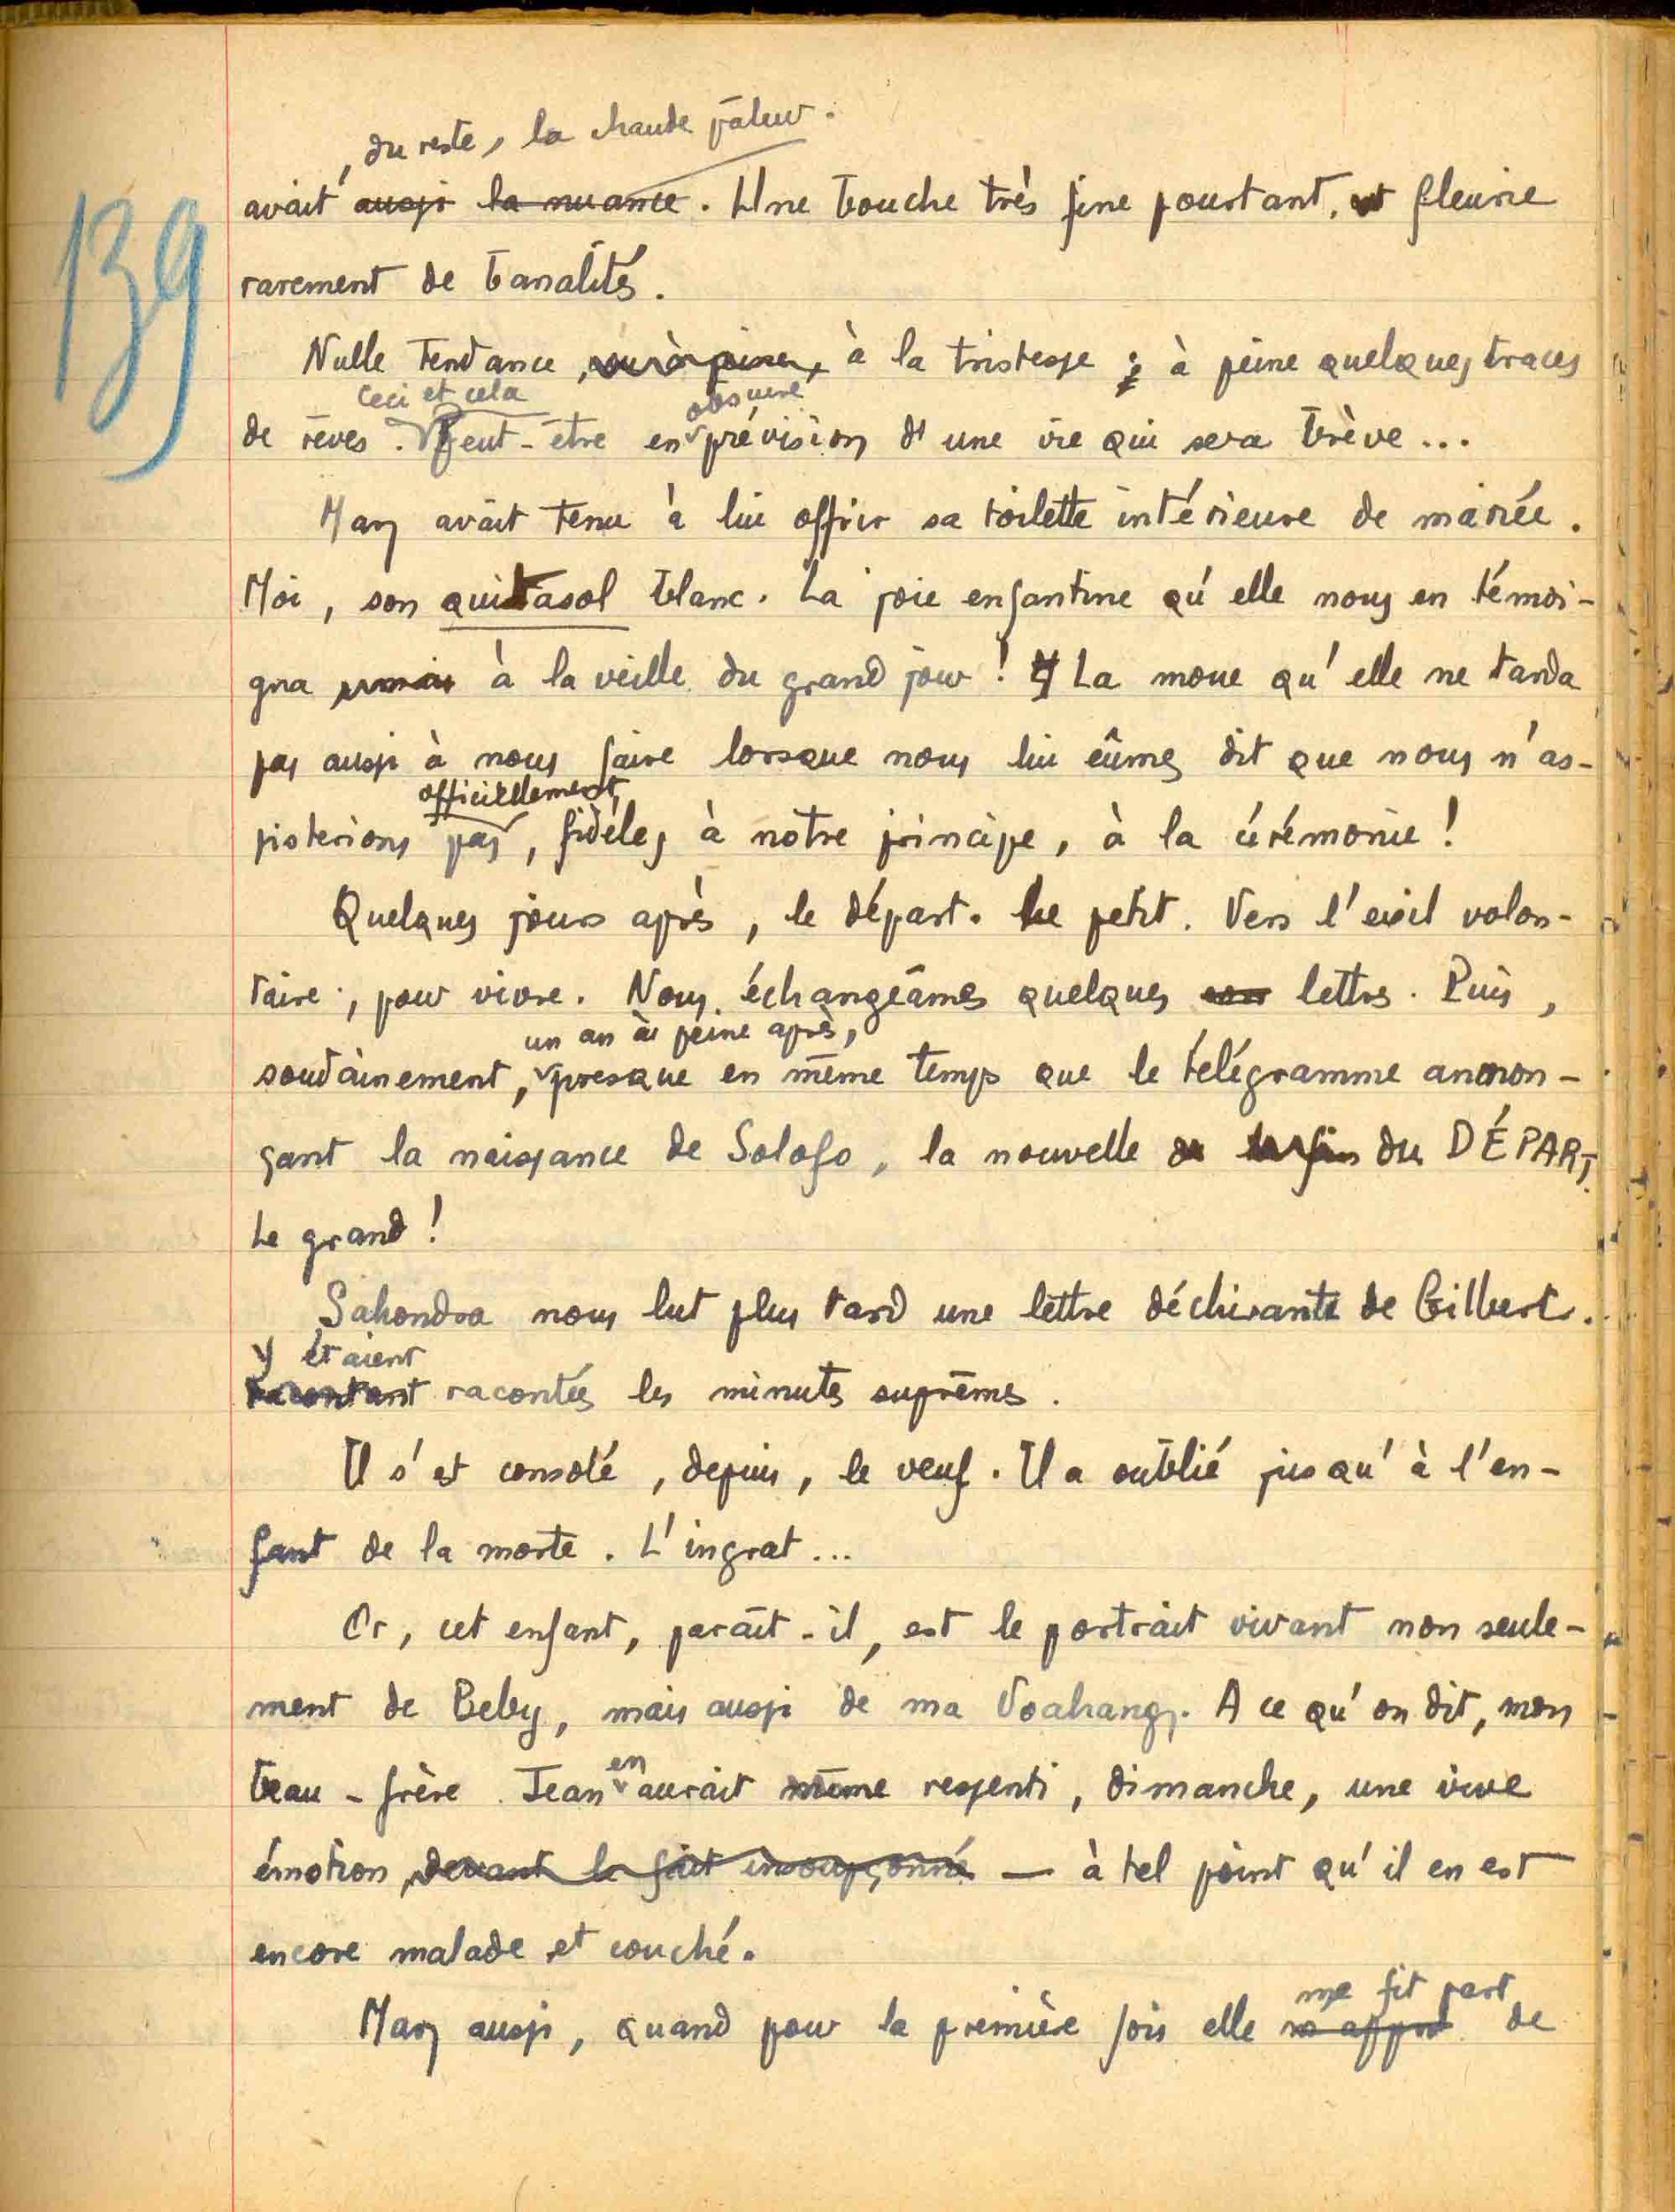 139
, du reste, la chaude pâleur.
avait aussi la nuance. Une bouche très fine pourtant, et fleurie
rarement de banalités.
Nulle tendance, ou à peine, à la tristesse ; à peine quelques traces
ceci et cela obscure
de rêves. Peut-être en prévision d'une vie qui sera brève...
Mary avait tenu à lui offrir sa toilette intérieure de mariée.
Moi, son quitasol blanc. La joie enfantine qu'elle nous en témoi-
gna à la veille du grand jour ! La moue qu'elle ne tarda
pas aussi à nous faire lorsque nous lui eûmes dit que nous n'as-
officiellement
sisterions pas, fidèles à notre principe, à la cérémonie !
Quelques jours après, le départ. Le petit. Vers l'exil volon-
taire, pour vivre. Nous échangeâmes quelques lettres. Puis,
un an à peine après,
soudainement, presque en même temps que le télégramme annon-
çant la naissance de Solofo, la nouvelle de la fin du DÉPART.
Le grand !
Sahondra nous lut plus tard une lettre déchirante de Gilbert.
y étaient
racontant racontées les minutes suprêmes.
Il s'est consolé, depuis, le veuf. Il a oublié jusqu'à l'en-
fant de la morte. L'ingrat...
Or, cet enfant, paraît-il, est le portrait vivant non seule-
ment de Beby, mais aussi de ma Voahangy. A ce qu'on dit, mon
en
beau-frère Jean aurait même ressenti, dimanche, une vive
émotion devant le fait insoupçonné — à tel point qu'il en est
encore malade et couché.
me fit part
Mary aussi, quand pour la première fois elle de